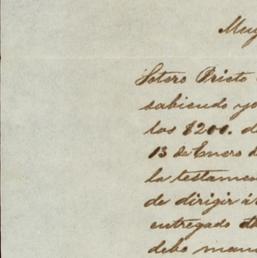 Muy
Sotero Prieto
sabiendo yo
los $200. d
13 de Enero d
la testamen
de dirigir á
entregado
debo man